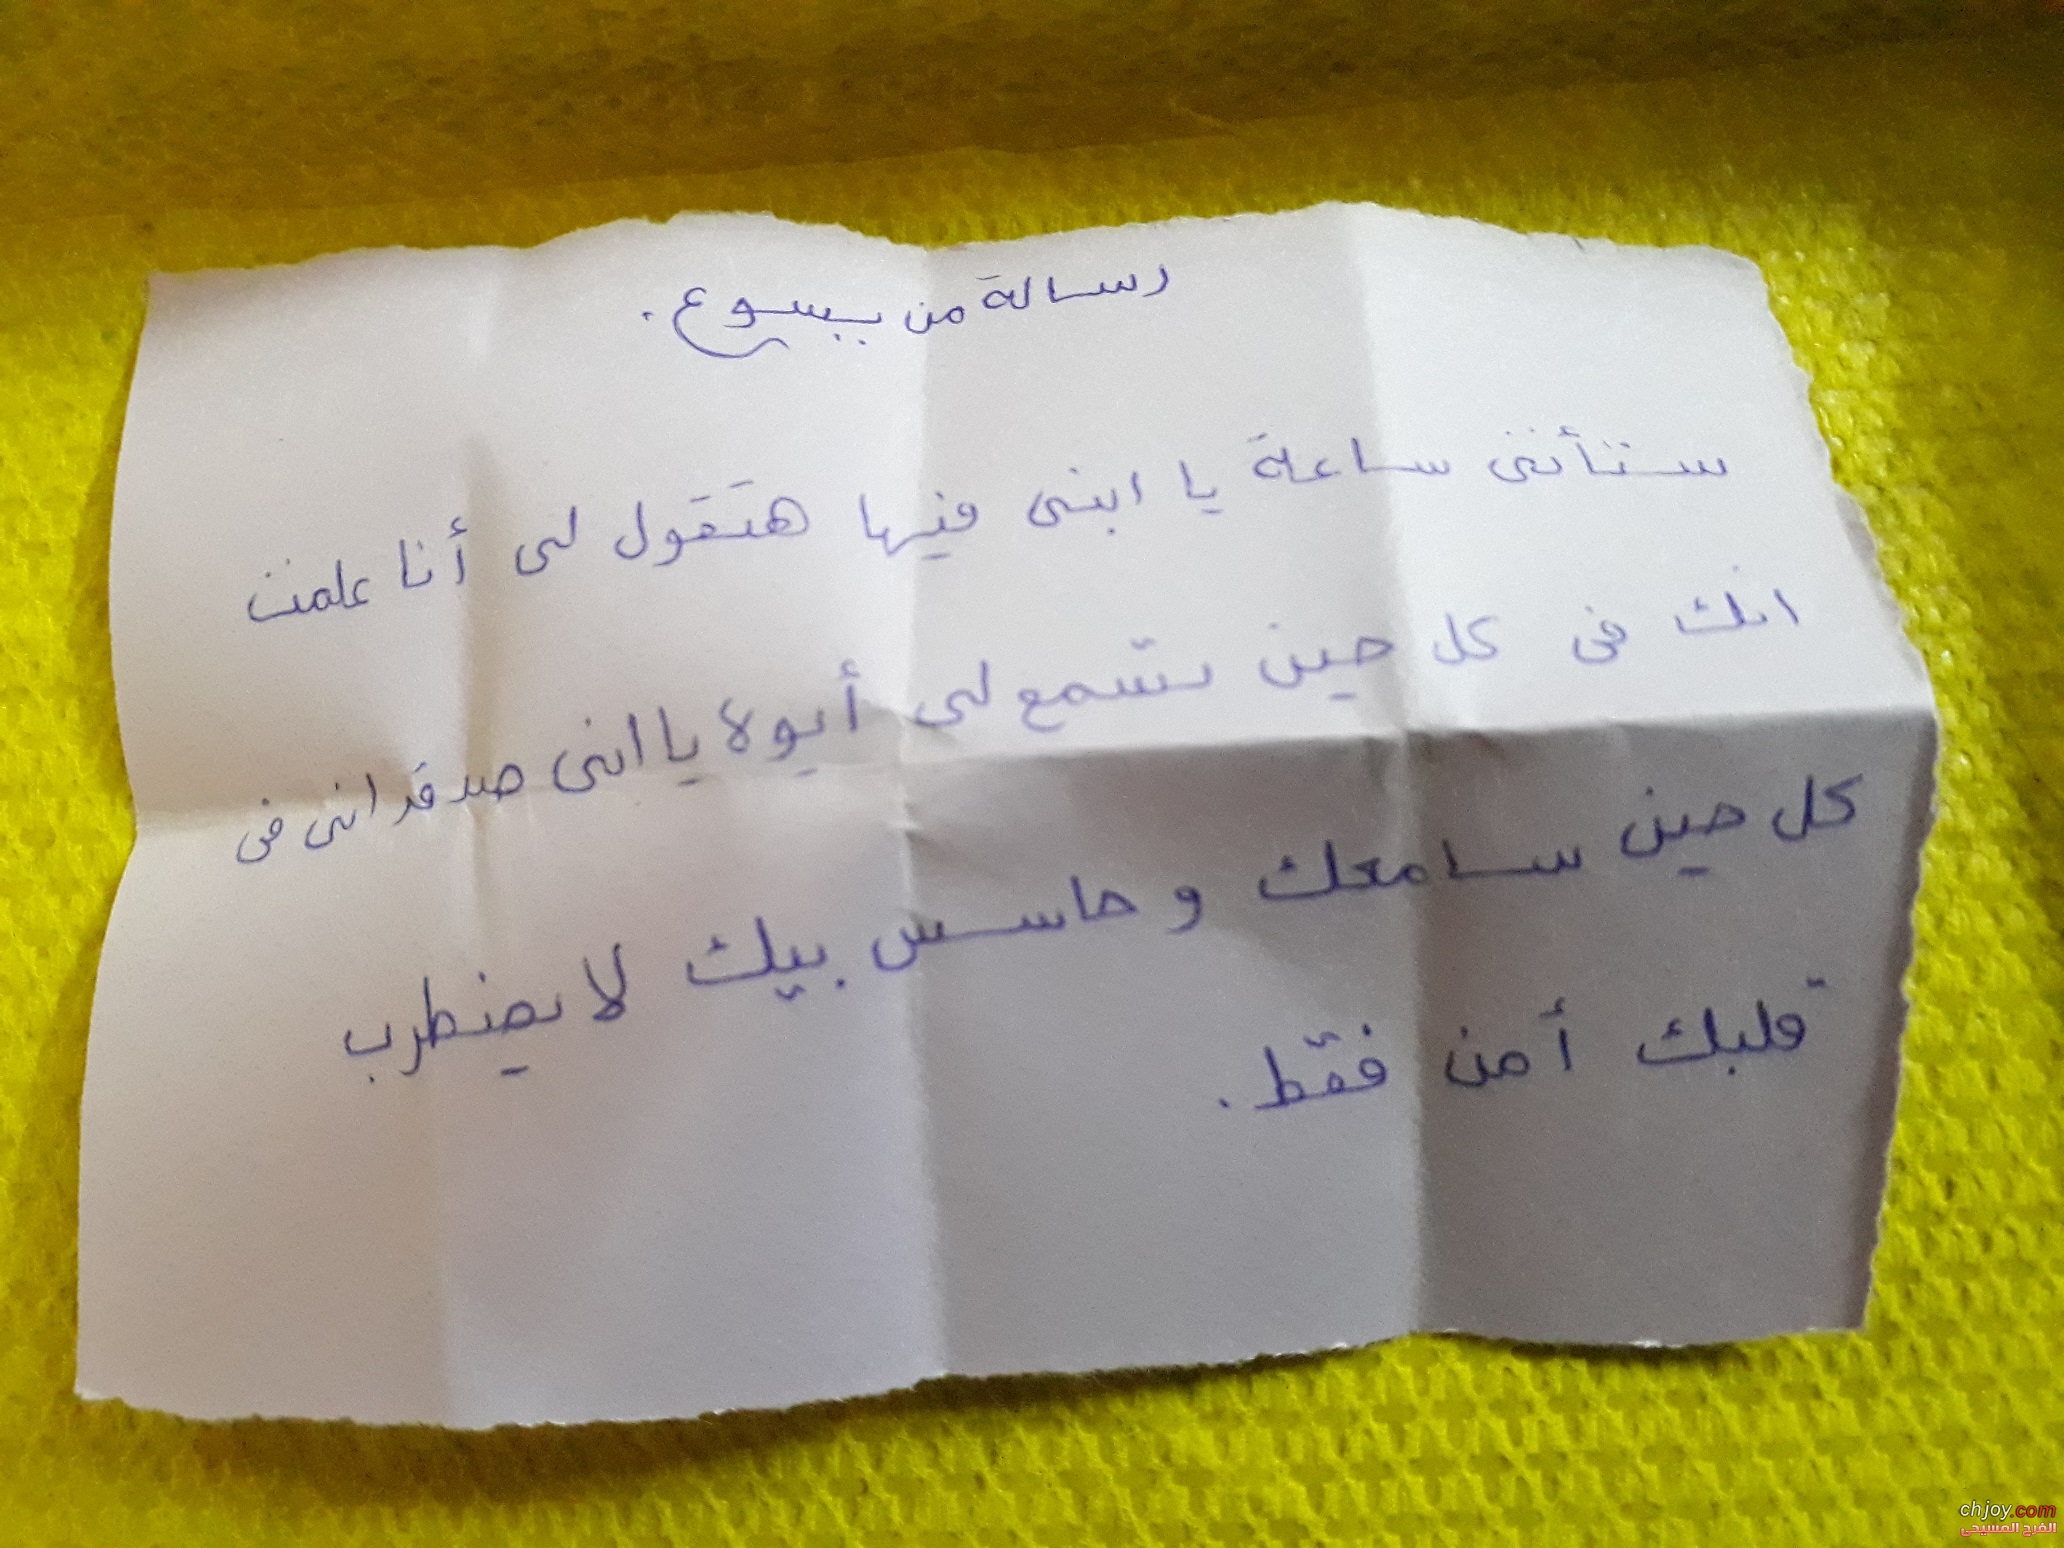 رسالة من يسوع.
ستأتى ساعة يا ابنى فيها هتقول لى أنا علمت
انك فى كل حين تسمع لى أيوة يا ابنى صدقـ انى فى
كل حين سامعك و حاسس بيك لا يضطرب
قلبك أمن فقط.
chjoy.com
الفرح المسيحى